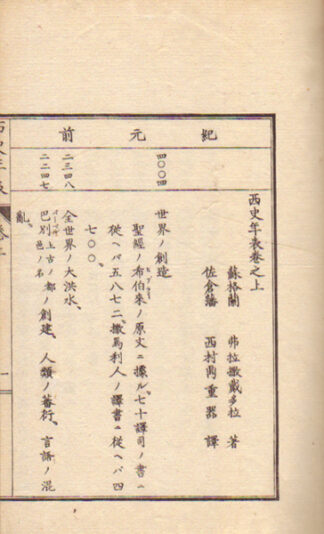 西史年表卷之上
蘇格蘭 弗拉撒戴多拉 著
佐倉藩 西村鼎重器 譯
紀元前
四〇〇四
世界ノ創造
聖經ノ布伯来ノ原文ニ據ル、七十譯司ノ書ニ
從ヘバ五八七二、撒馬利人ノ譯書ニ從ヘバ四
七〇〇、
二三四八
全世界ノ大洪水、
二二四七
巴別上古ノ都邑ノ名ノ創建、人類ノ蕃衍、言語ノ混
亂、